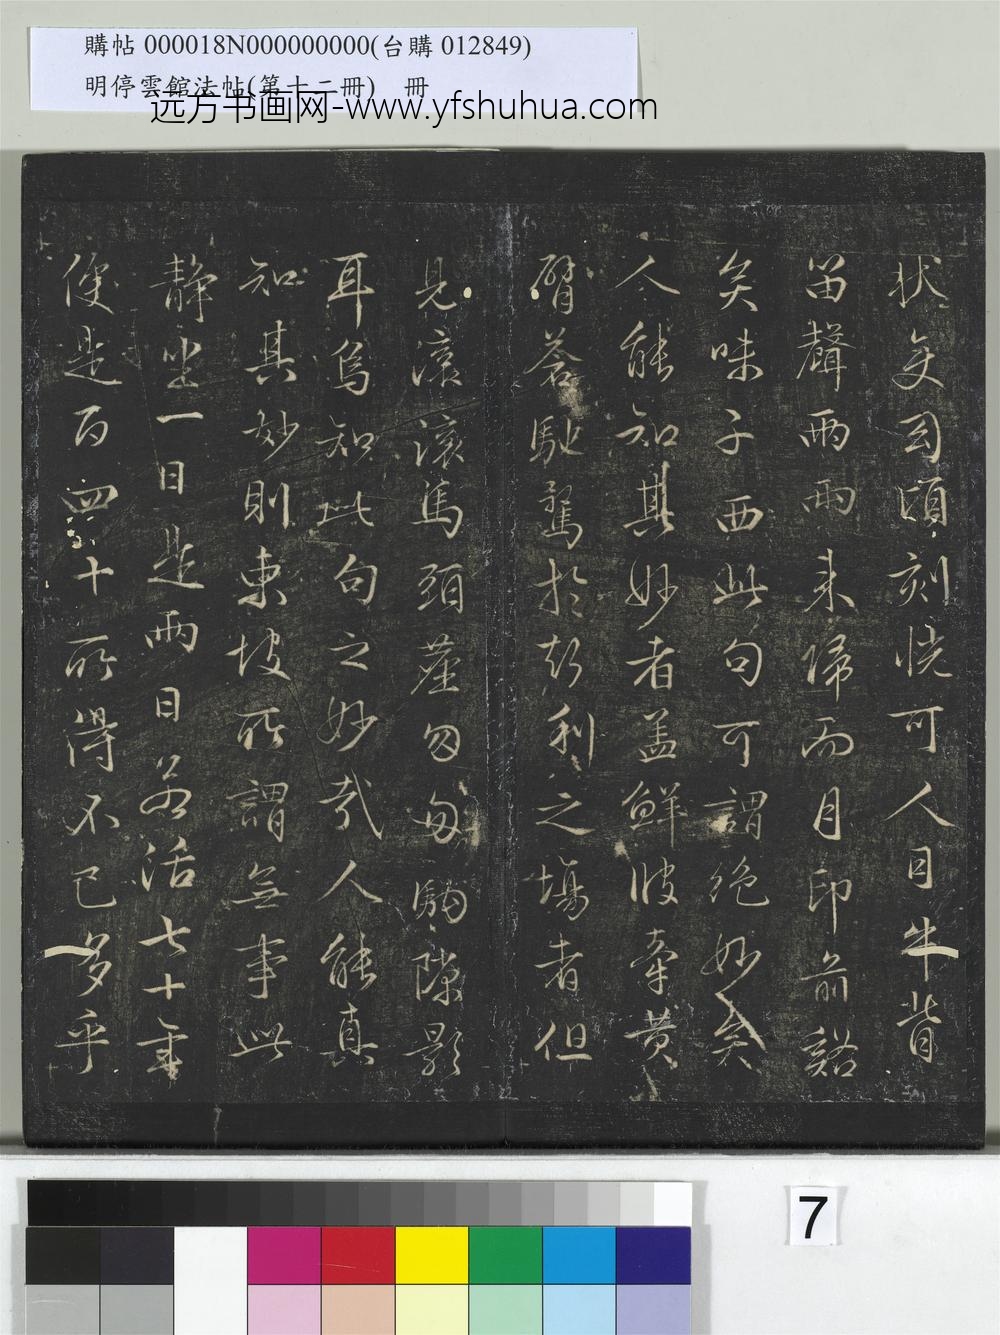 購帖 000018N000000000(台購 012849)
明停雲館法帖(第十二冊) 冊
远方书画网-www.yfshuhua.com
状变幻頃刻恍可人目牛背
笛聲兩兩来歸而月印前谿
矣味子西此句可謂絶妙矣
人能知其妙者盖鮮彼牽黄
臂蒼馳騖於声利之場者但
見滚滚馬頭塵匆匆駒隙影
耳烏知此句之妙哉人能真
知其妙則東坡所謂無事此
静坐一日是兩日若活七十年
便是百四十所得不已多乎
7